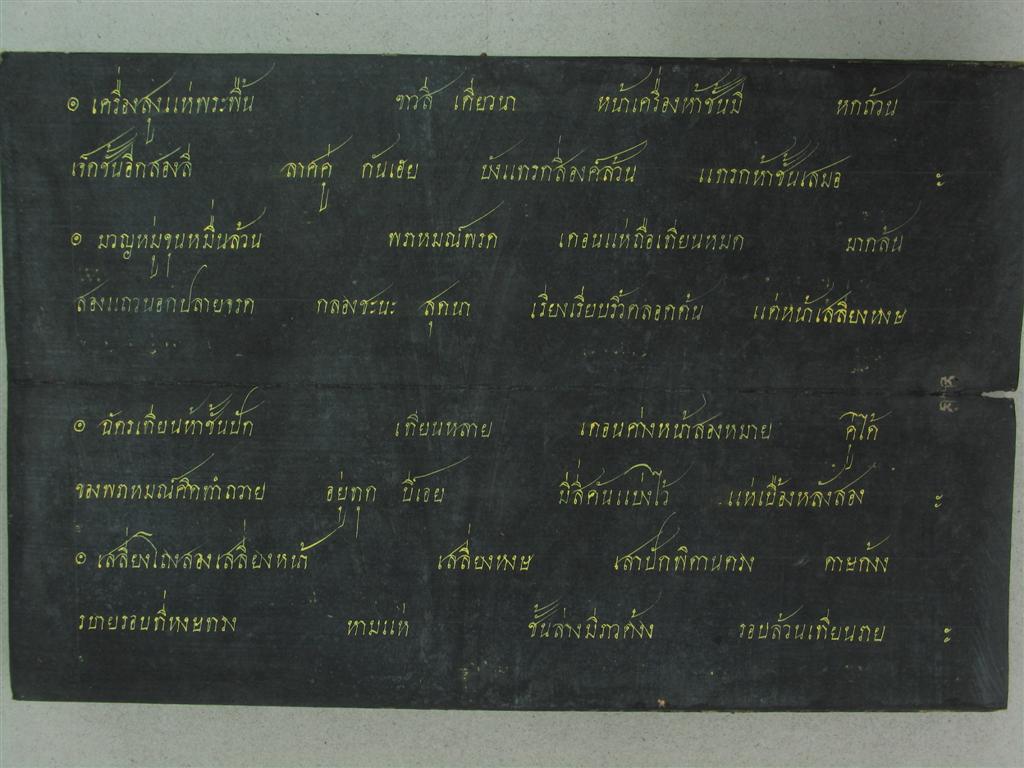 ๏ เครื่องสูงแห่พระพื้น ขาวสี เดียวนา หน้าเครื่องห้าชั้นมี หกถ้วน
เจ็ดชั้นอีกสองสี่ ลาศคู่ กันเฮย บังแทรกสี่องค์ล้วน แทรกห้าชั้นเสมอ ะ
๏ มวญหมู่ขุนหมื่นล้วน พราหมณ์พรต เดอนแห่ถือเทียนหมด มากล้น
สองแถวนอกปลายจรด กลองชะนะ สุดนา เรียงเรียบริ้วตลอดต้น แต่หน้าเสลี่ยงหงษ
๏ ฉัตรเทียนห้าชั้นปัก เทียนหลาย เดอนต่างหน้าสองหมาย คู่ได้
ของพราหมณ์คิดทำถวาย อยู่ทุก ปีเอย มีสี่คันแบ่งไว้ แห่เบื้องหลังสอง ะ
๏ เสลี่ยงโถงสองเสลี่ยงหน้า เสลี่ยงหงษ เสาปักพิดานตรง ดาษกั้ง
รบายรอบที่หงษทรง หามแห่ ชั้นล่างมีราวตั้ง รอบล้วนเทียนราย ะ